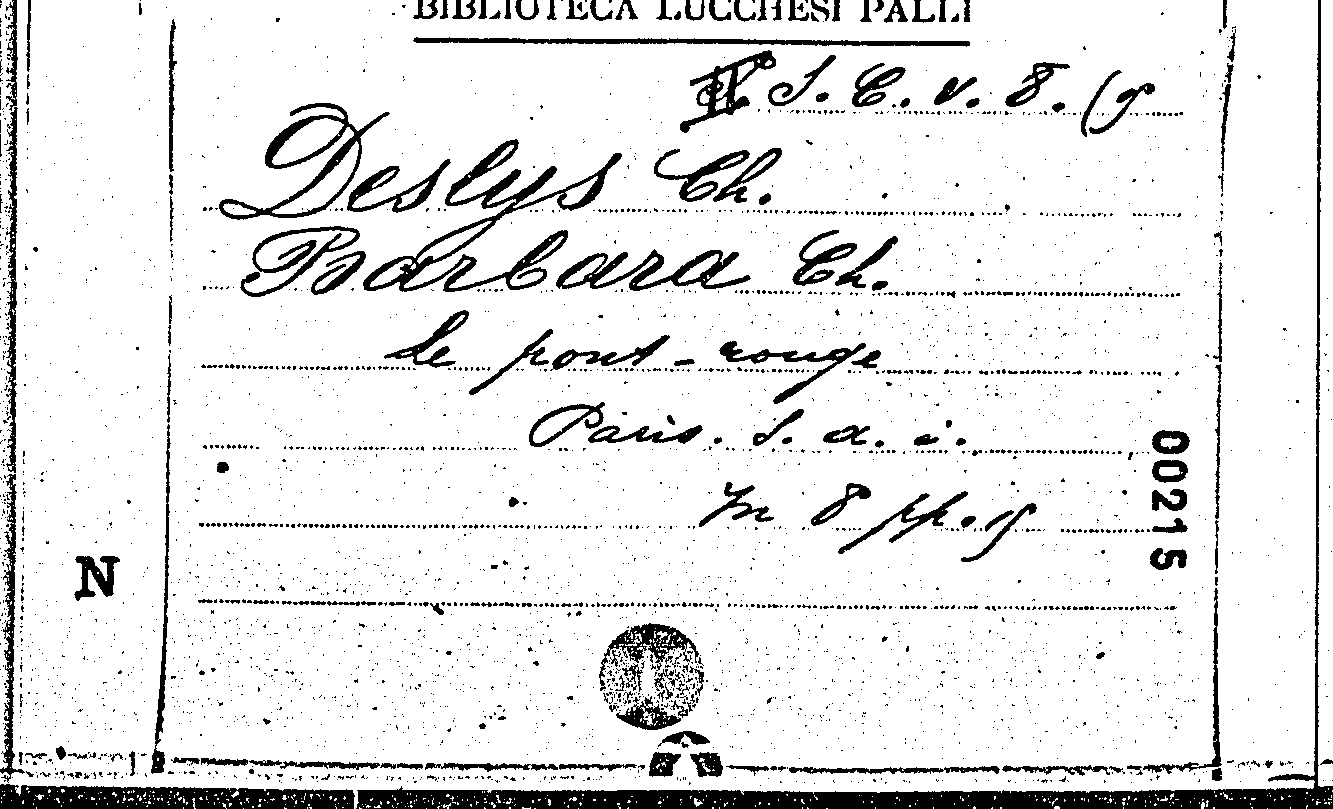 BIBLIOTECA LUCCHESI PALLI
S. C. v. 8. (9
Deslys Ch.
Barbara Ch.
Le pont-rouge
Paris. S. a. i.
In 8 pp. 19
00215
N